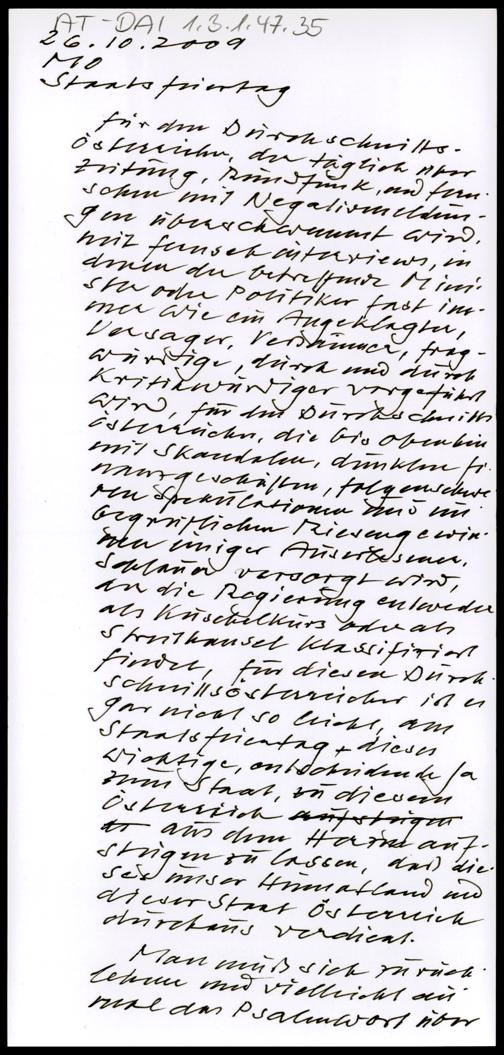 AT-DAI 1.3.1.47.35
26.10.2009
MO
Staatsfeiertag
Für den Durchschnitts-
österreicher, der täglich über
Zeitung, Rundfunk, und Fern-
sehen mit Negativmeldun-
gen überschwemmt wird,
mit Fernsehinterviews, in
denen der betreffende Mini-
ster oder Politiker fast im-
mer wie ein Angeklagter,
Versager, Versäumer, frag-
würdiger, durch und durch
Kritikwürdiger vorgeführt
wird, für den Durchschnitts
österreicher, der bis oben hin
mit Skandalen, dunklen Fi-
nanzgeschäften, folgenschwe-
ren Spekulationen und un
begreiflichen Riesengewin-
nen einiger Auserlesener,
Schlauer versorgt wird,
der die Regierung entweder
als Kuschelkurs oder als
Streithansel klassifiziert
findet, für diesen Durch-
schnittsösterreicher ist es
gar nicht so leicht, am
Staatsfeiertag dieses
wichtige, entscheidende Ja
zum Staat, zu diesem
Österreich aufsteigen
aus dem Herzen auf-
steigen zu lassen, das die-
ses unser Heimatland und
dieser Staat Österreich
durchaus verdient.
Man muß sich zurück
lehnen und vielleicht ein
mal das Psalmwort über